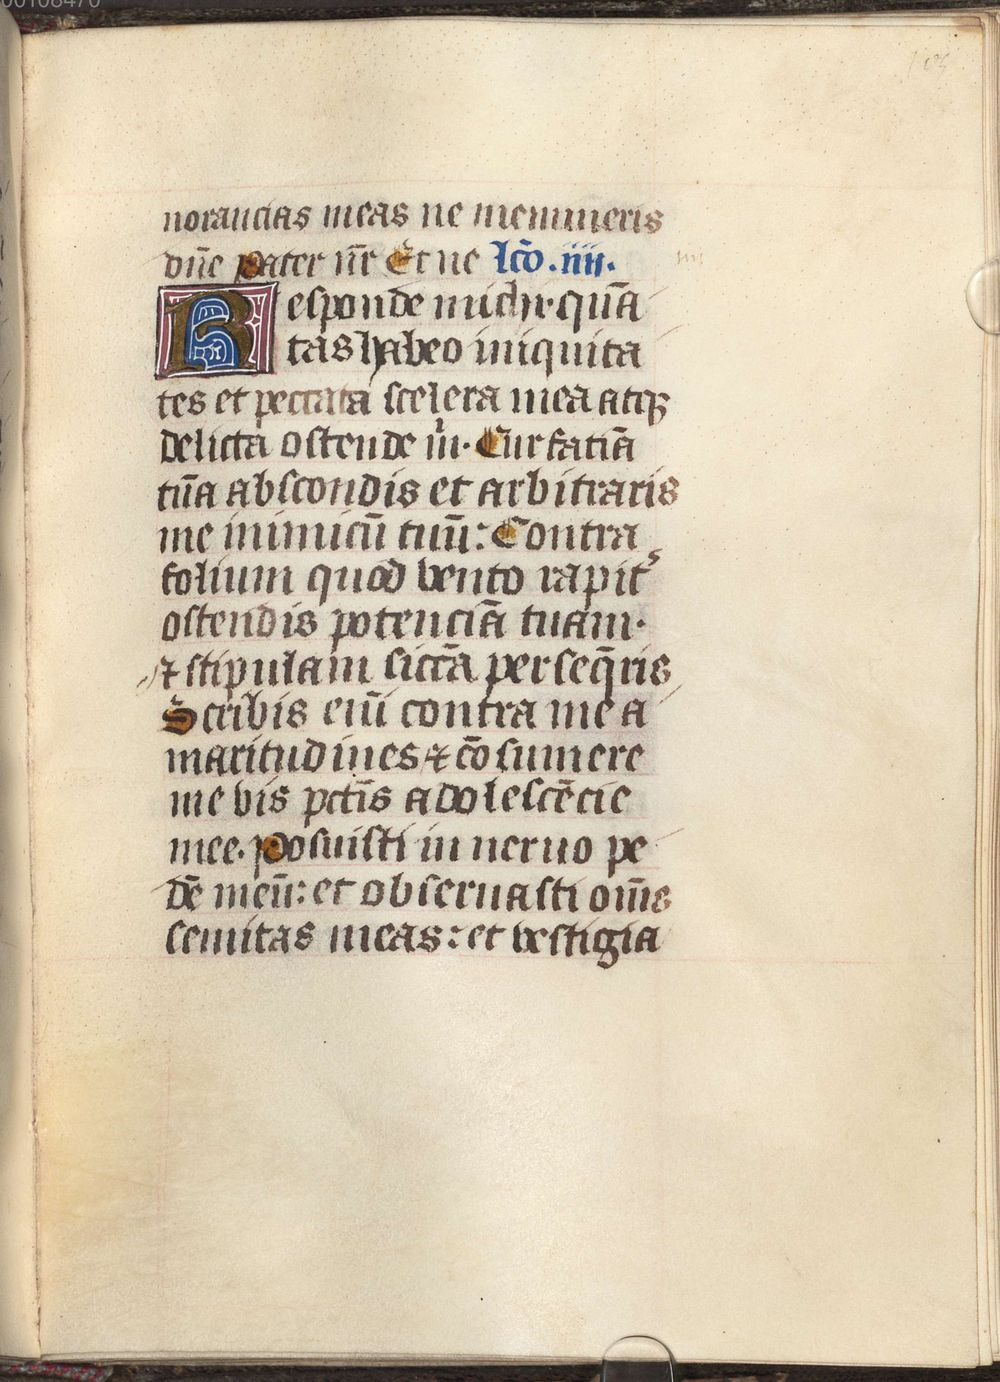 norancias meas ne memineris
dñe Pater nr̄ Et ne lcō .iiii.
Responde michi. quā
tas habeo iniquita
tes et peccata scelera mea atqꝫ
delicta ostende m̄. Cur faciā
tuā abscondis et arbitraris
me inimicū tuū: Contra
folium quod vento rapit᷑
ostendis potenciā tuam.
⁊ stipulam siccā perseq̄ris
Scribis eniū contra me a
maritudines ⁊ cōsumere
me vis pctīs adolescēcie
mee. Posuisti in neruo pe
dē meū: et obseruasti om̄s
semitas meas: et vestigia